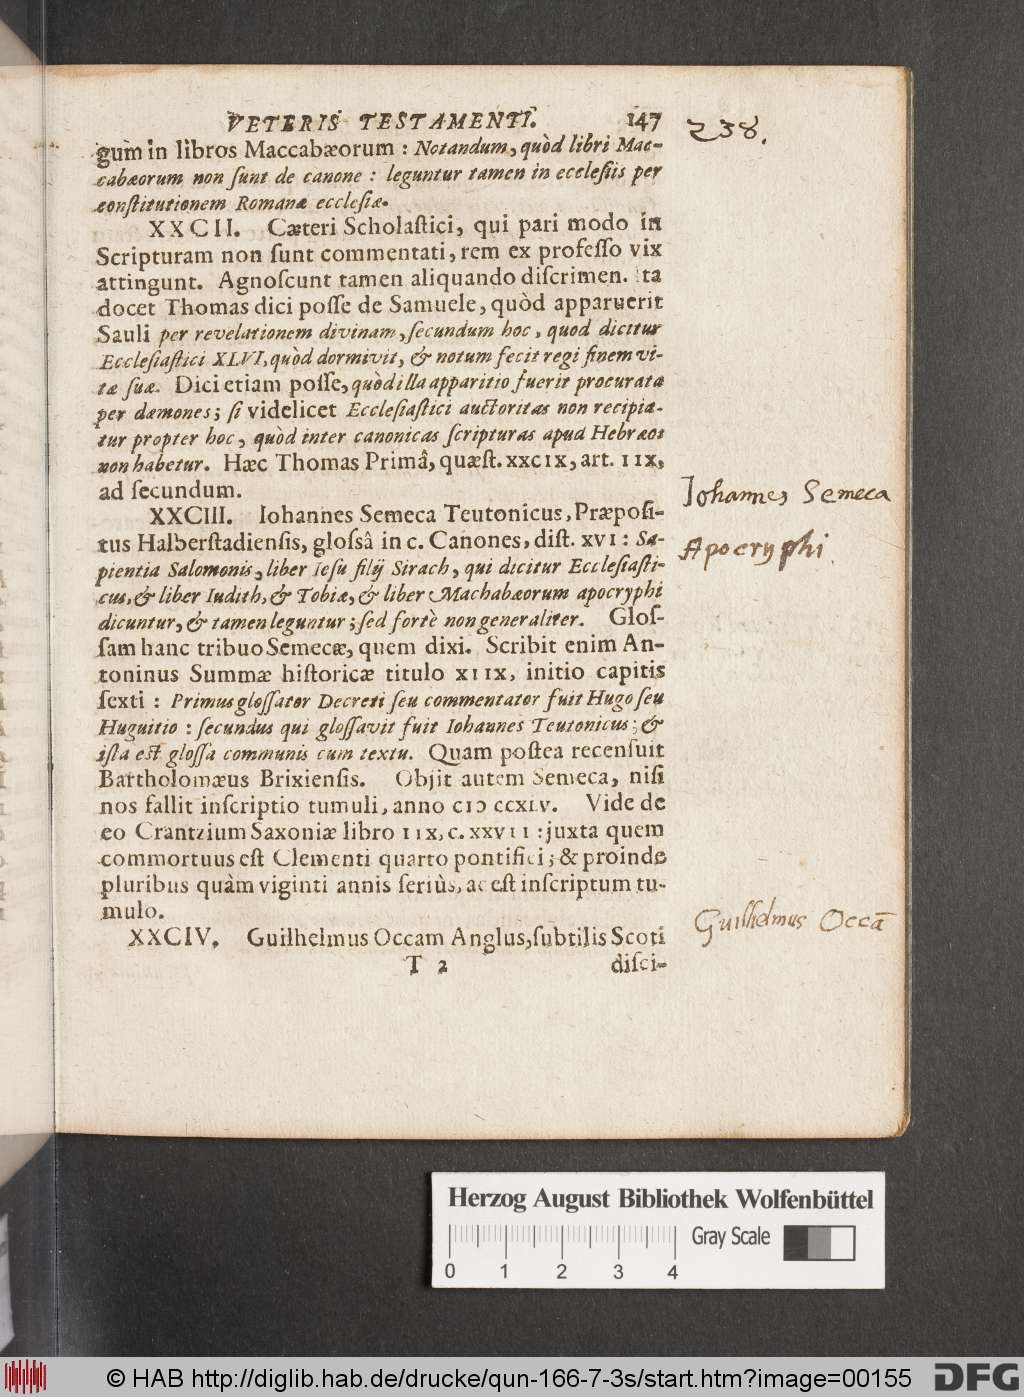 VETERIS TESTAMENTI. 147
238.
gum in libros Maccabæorum : Notandum, quòd libri Mac-
cabæorum non ſunt de canone : leguntur tamen in eccleſiis per
conſtitutionem Romanæ eccleſiæ.
XXCII. Cæteri Scholaſtici, qui pari modo in
Scripturam non ſunt commentati, rem ex profeſſo vix
attingunt. Agnoſcunt tamen aliquando diſcrimen. Ita
docet Thomas dici poſſe de Samuele, quòd apparuerit
Sauli per revelationem divinam, ſecundum hoc, quod dicitur
Eccleſiaſtici XLVI, quòd dormivit, & notum fecit regi finem vi-
tæ ſuæ. Dici etiam poſſe, quòd illa apparitio fuerit procurata
per dæmones; ſi videlicet Eccleſiaſtici auctoritas non recipia-
tur propter hoc, quòd inter canonicas ſcripturas apud Hebræos
non habetur. Hæc Thomas Primâ, quæſt. XXCIX, art. IIX,
ad ſecundum.
XXCIII. Iohannes Semeca Teutonicus, Præpoſi-
tus Halberſtadienſis, gloſsâ in c. Canones, diſt. XVI : Sa-
pientia Salomonis, liber Ieſu filij Sirach, qui dicitur Eccleſiaſti-
cus, & liber Iudith, & Tobiæ, & liber Machabæorum apocryphi
dicuntur, & tamen leguntur; ſed fortè non generaliter. Gloſ-
ſam hanc tribuo Semecæ, quem dixi. Scribit enim An-
toninus Summæ hiſtoricæ titulo XIIX, initio capitis
ſexti : Primus gloſſator Decreti ſeu commentator fuit Hugo ſeu
Huguitio : ſecundus qui gloſſavit fuit Iohannes Teutonicus; &
iſta eſt gloſſa communis cum textu. Quam poſtea recenſuit
Bartholomæus Brixienſis. Objit autem Semeca, niſi
nos fallit inſcriptio tumuli, anno CIↃ CCXLV. Vide de
eo Crantzium Saxoniæ libro IIX, c. XXVII : juxta quem
commortuus eſt Clementi quarto pontifici; & proinde
pluribus quàm viginti annis ſeriùs, ac eſt inſcriptum tu-
mulo.
XXCIV. Guilhelmus Occam Anglus, ſubtilis Scoti
T 2 diſci-
Johannes Semeca
Apocryphi
Guilhelmus Occā
Herzog August Bibliothek Wolfenbüttel
Gray Scale
0 1 2 3 4
© HAB http://diglib.hab.de/drucke/qun-166-7-3s/start.htm?image=00155
DFG